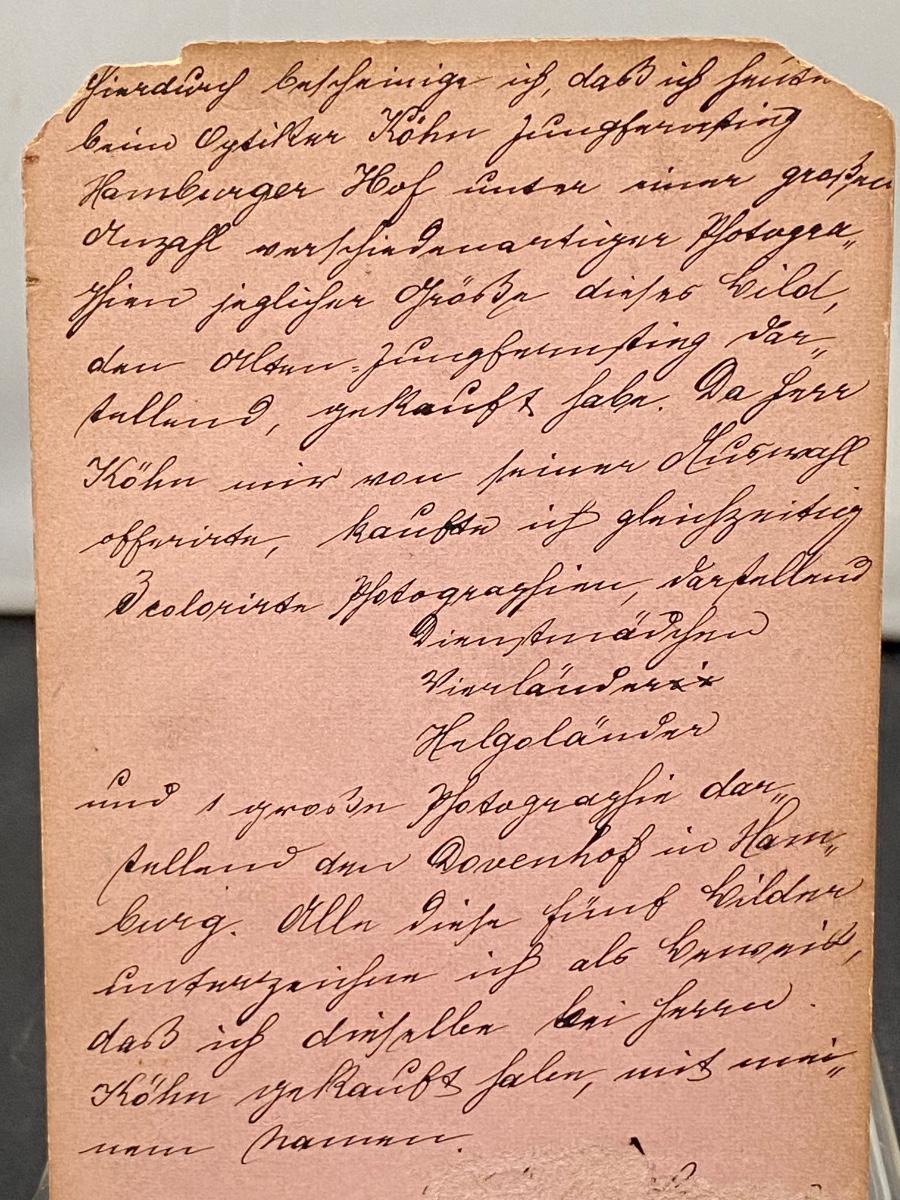 Hierdurch bescheinige ich, daß ich heute
beim Optiker Köhn Jungfernsting
Hamburger Hof unter einer großen
Anzahl verschiedenartiger Photogra„
phien jeglicher Größe dieses Bild,
den Alten-Jungfernstieg dar„
stellend, gekauft habe. Da Herr
Köhn mir von seiner Auswahl
offerirte, kaufte ich gleichzeitig
3 colorirte Photographien, darstellend
Dienstmädchen
Vierländer
Helgoländer
und 1 große Photographie dar„
stellend den Dovenhof in Ham„
burg. Alle diese fünf Bilder
unterzeichne ich als Beweiß,
daß ich dieselbe bei Herrn
Köhn gekauft habe, mit mei„
nem Namen.